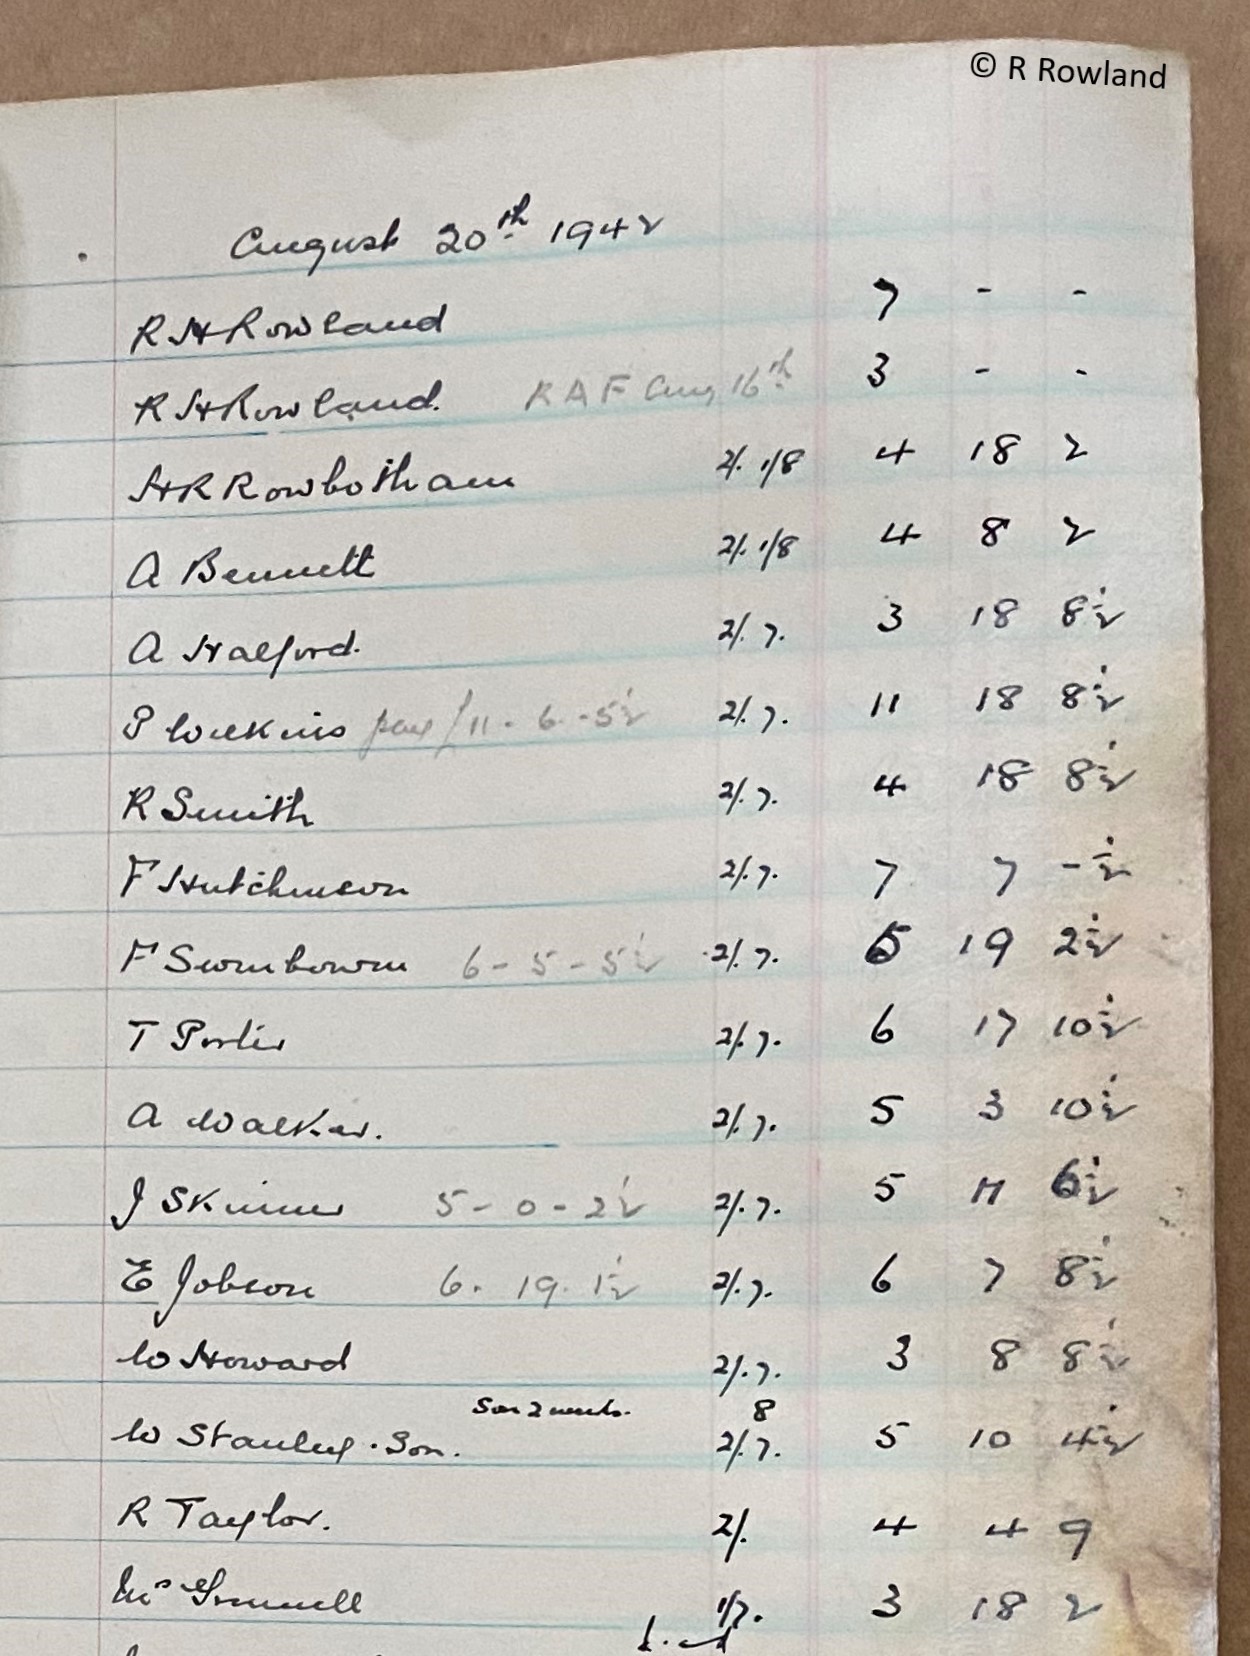 © R Rowland
August 20th 1942
R H Rowland 7 - -
R H Rowland. RAF Aug 16th 3 - -
H R Rowbotham 2/. 1/8 4 18 2
A Bennett 2/. 1/8 4 8 2
A Halford. 2/. 7. 3 18 8½
P Wilkins pay £11 - 6 - 5½ 2/. 7. 11 18 8½
R Smith 2/. 7. 4 18 8½
F Hutchinson 2/. 7. 7 7 - ½
F Swinbourn 6 - 5 - 5½ 2/. 7. 5 19 2½
T Porter 2/. 7. 6 17 10½
A Walker. 2/. 7. 5 3 10½
J Skinner 5 - 0 - 2½ 2/. 7. 5 11 6½
E Jobson 6. 19. 1½ 2/. 7. 6 7 8½
W Howard 2/. 7. 3 8 8½
Son 2 weeks. 8
W Stanley. Son. 2/. 7. 5 10 4½
R Taylor. 2/. 4 4 9
Mrs Grunnell 1/7. 3 18 2